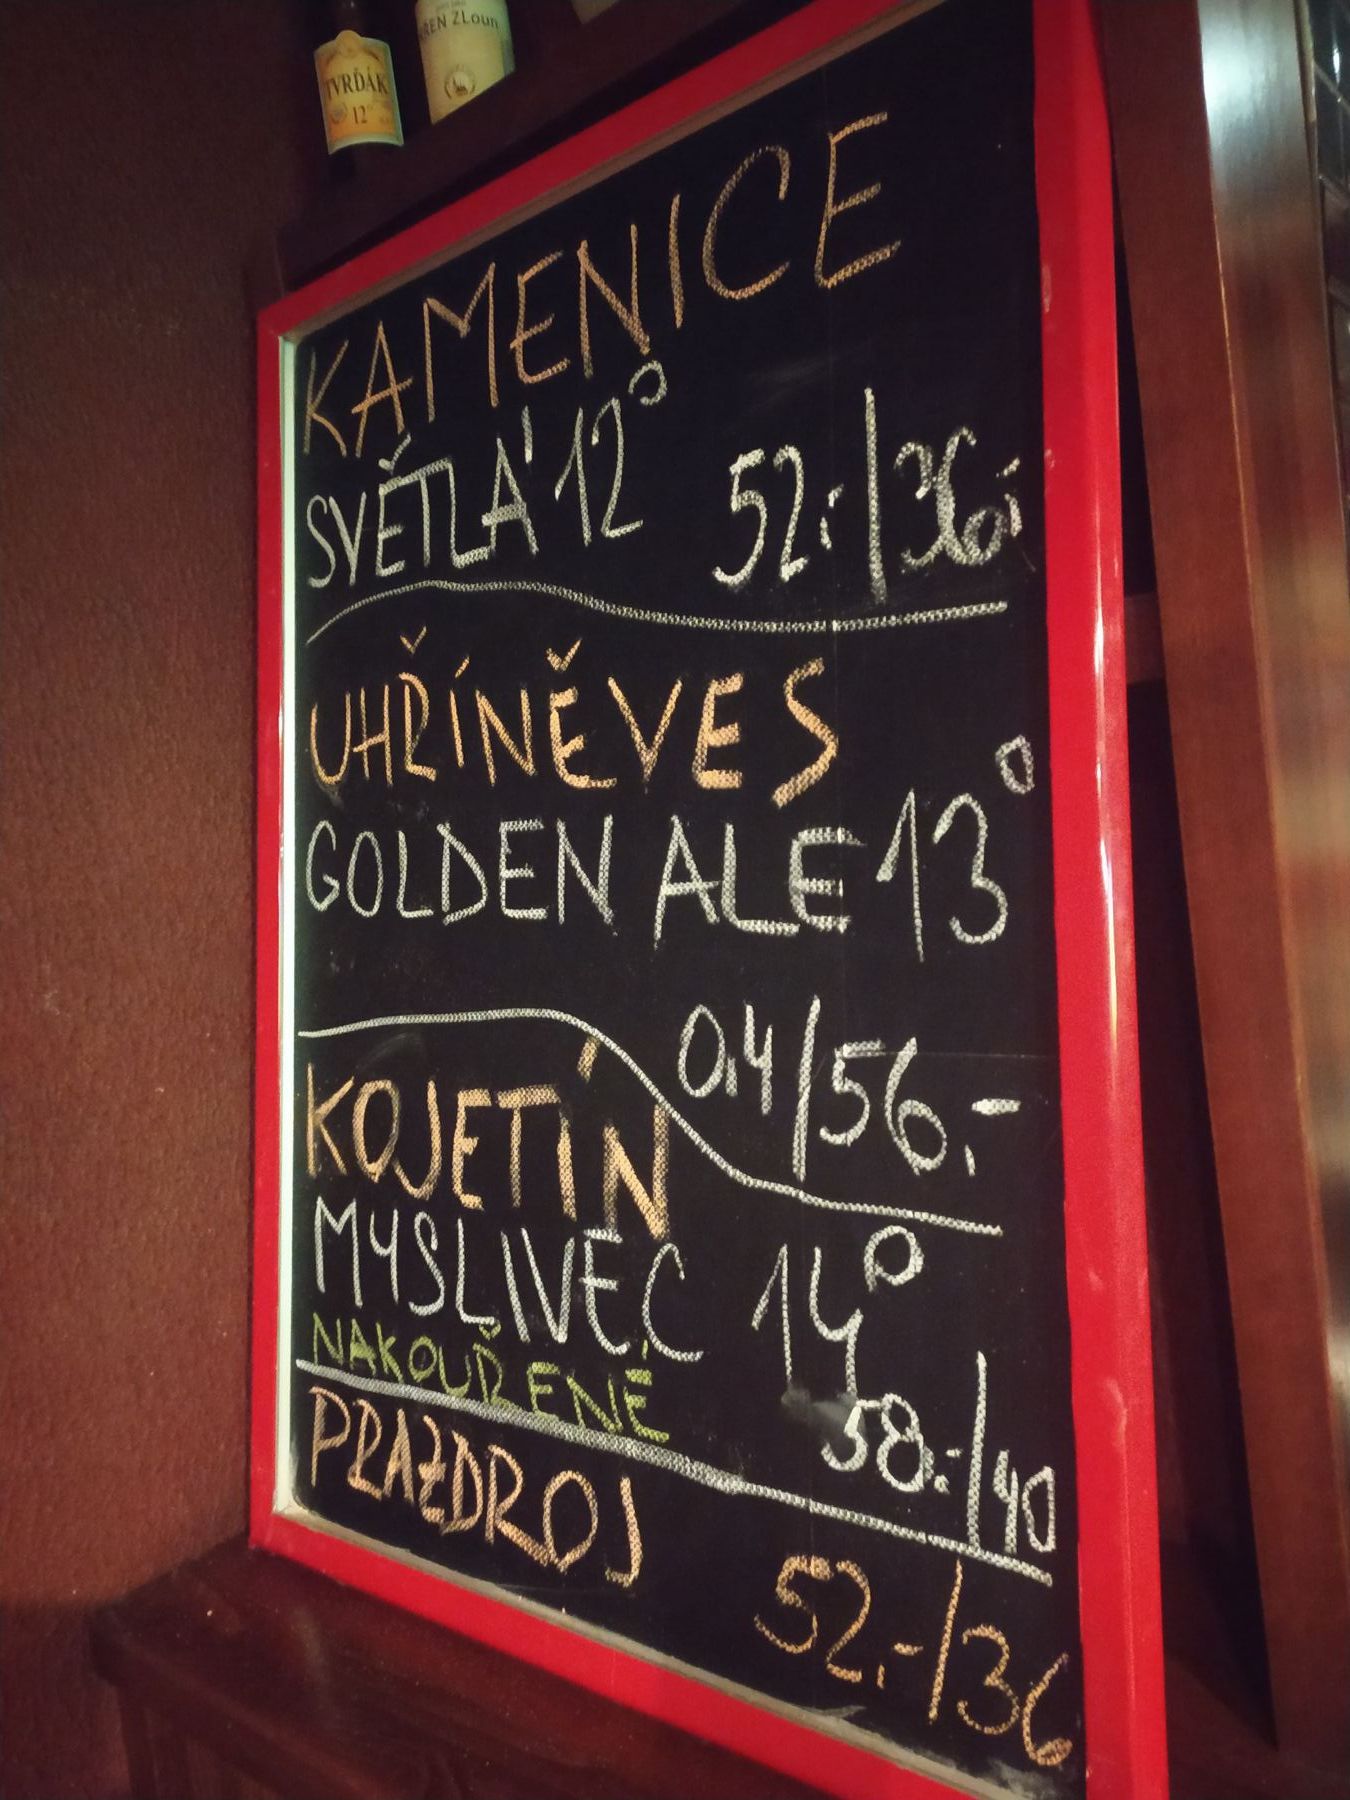 TVRĎÁK
12°
ŘEN ZLoun
KAMENICE
SVĚTLÁ 12° 52,-/36,-
UHŘÍNĚVES
GOLDEN ALE 13°
0,4/56,-
KOJETÍN
MYSLIVEC 14°
NAKOUŘENÉ
58,-/40
PRAZDROJ
52,-/36